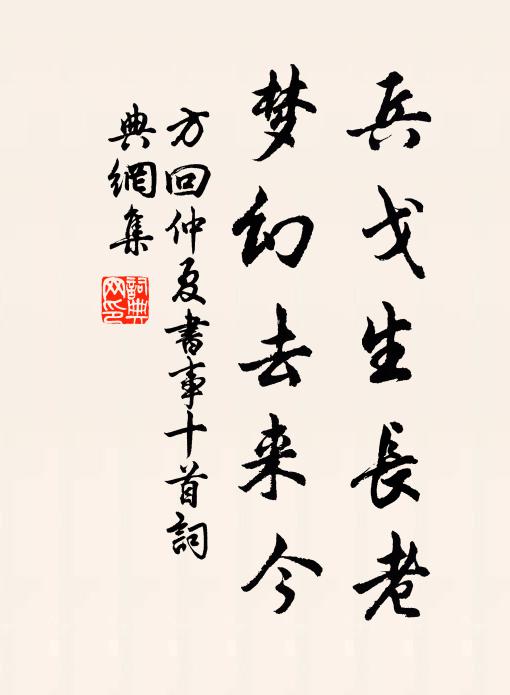 兵戈生長老
梦幻去来今
方回仲夏書事十首詞
典網集
詞典
网印